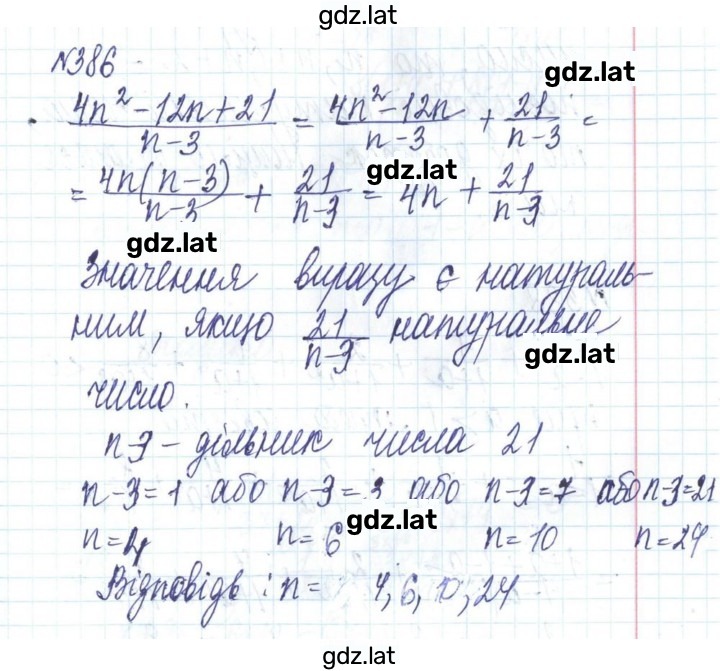 gdz.lat
№386
gdz.lat
(4n² - 12n + 21)/(n - 3) = (4n² - 12n)/(n - 3) + 21/(n - 3) =
= 4n(n - 3)/(n - 3) + 21/(n - 3) = 4n + 21/(n - 3)
gdz.lat
gdz.lat
Значення виразу є натураль-
ним, якщо 21/(n - 3) натуральне
gdz.lat
число.
n-3 – дільник числа 21.
n-3=1 або n-3=3 або n-3=7 або n-3=21
gdz.lat
n=4 n=6 n=10 n=24
Відповідь: n= 4, 6, 10, 24
gdz.lat